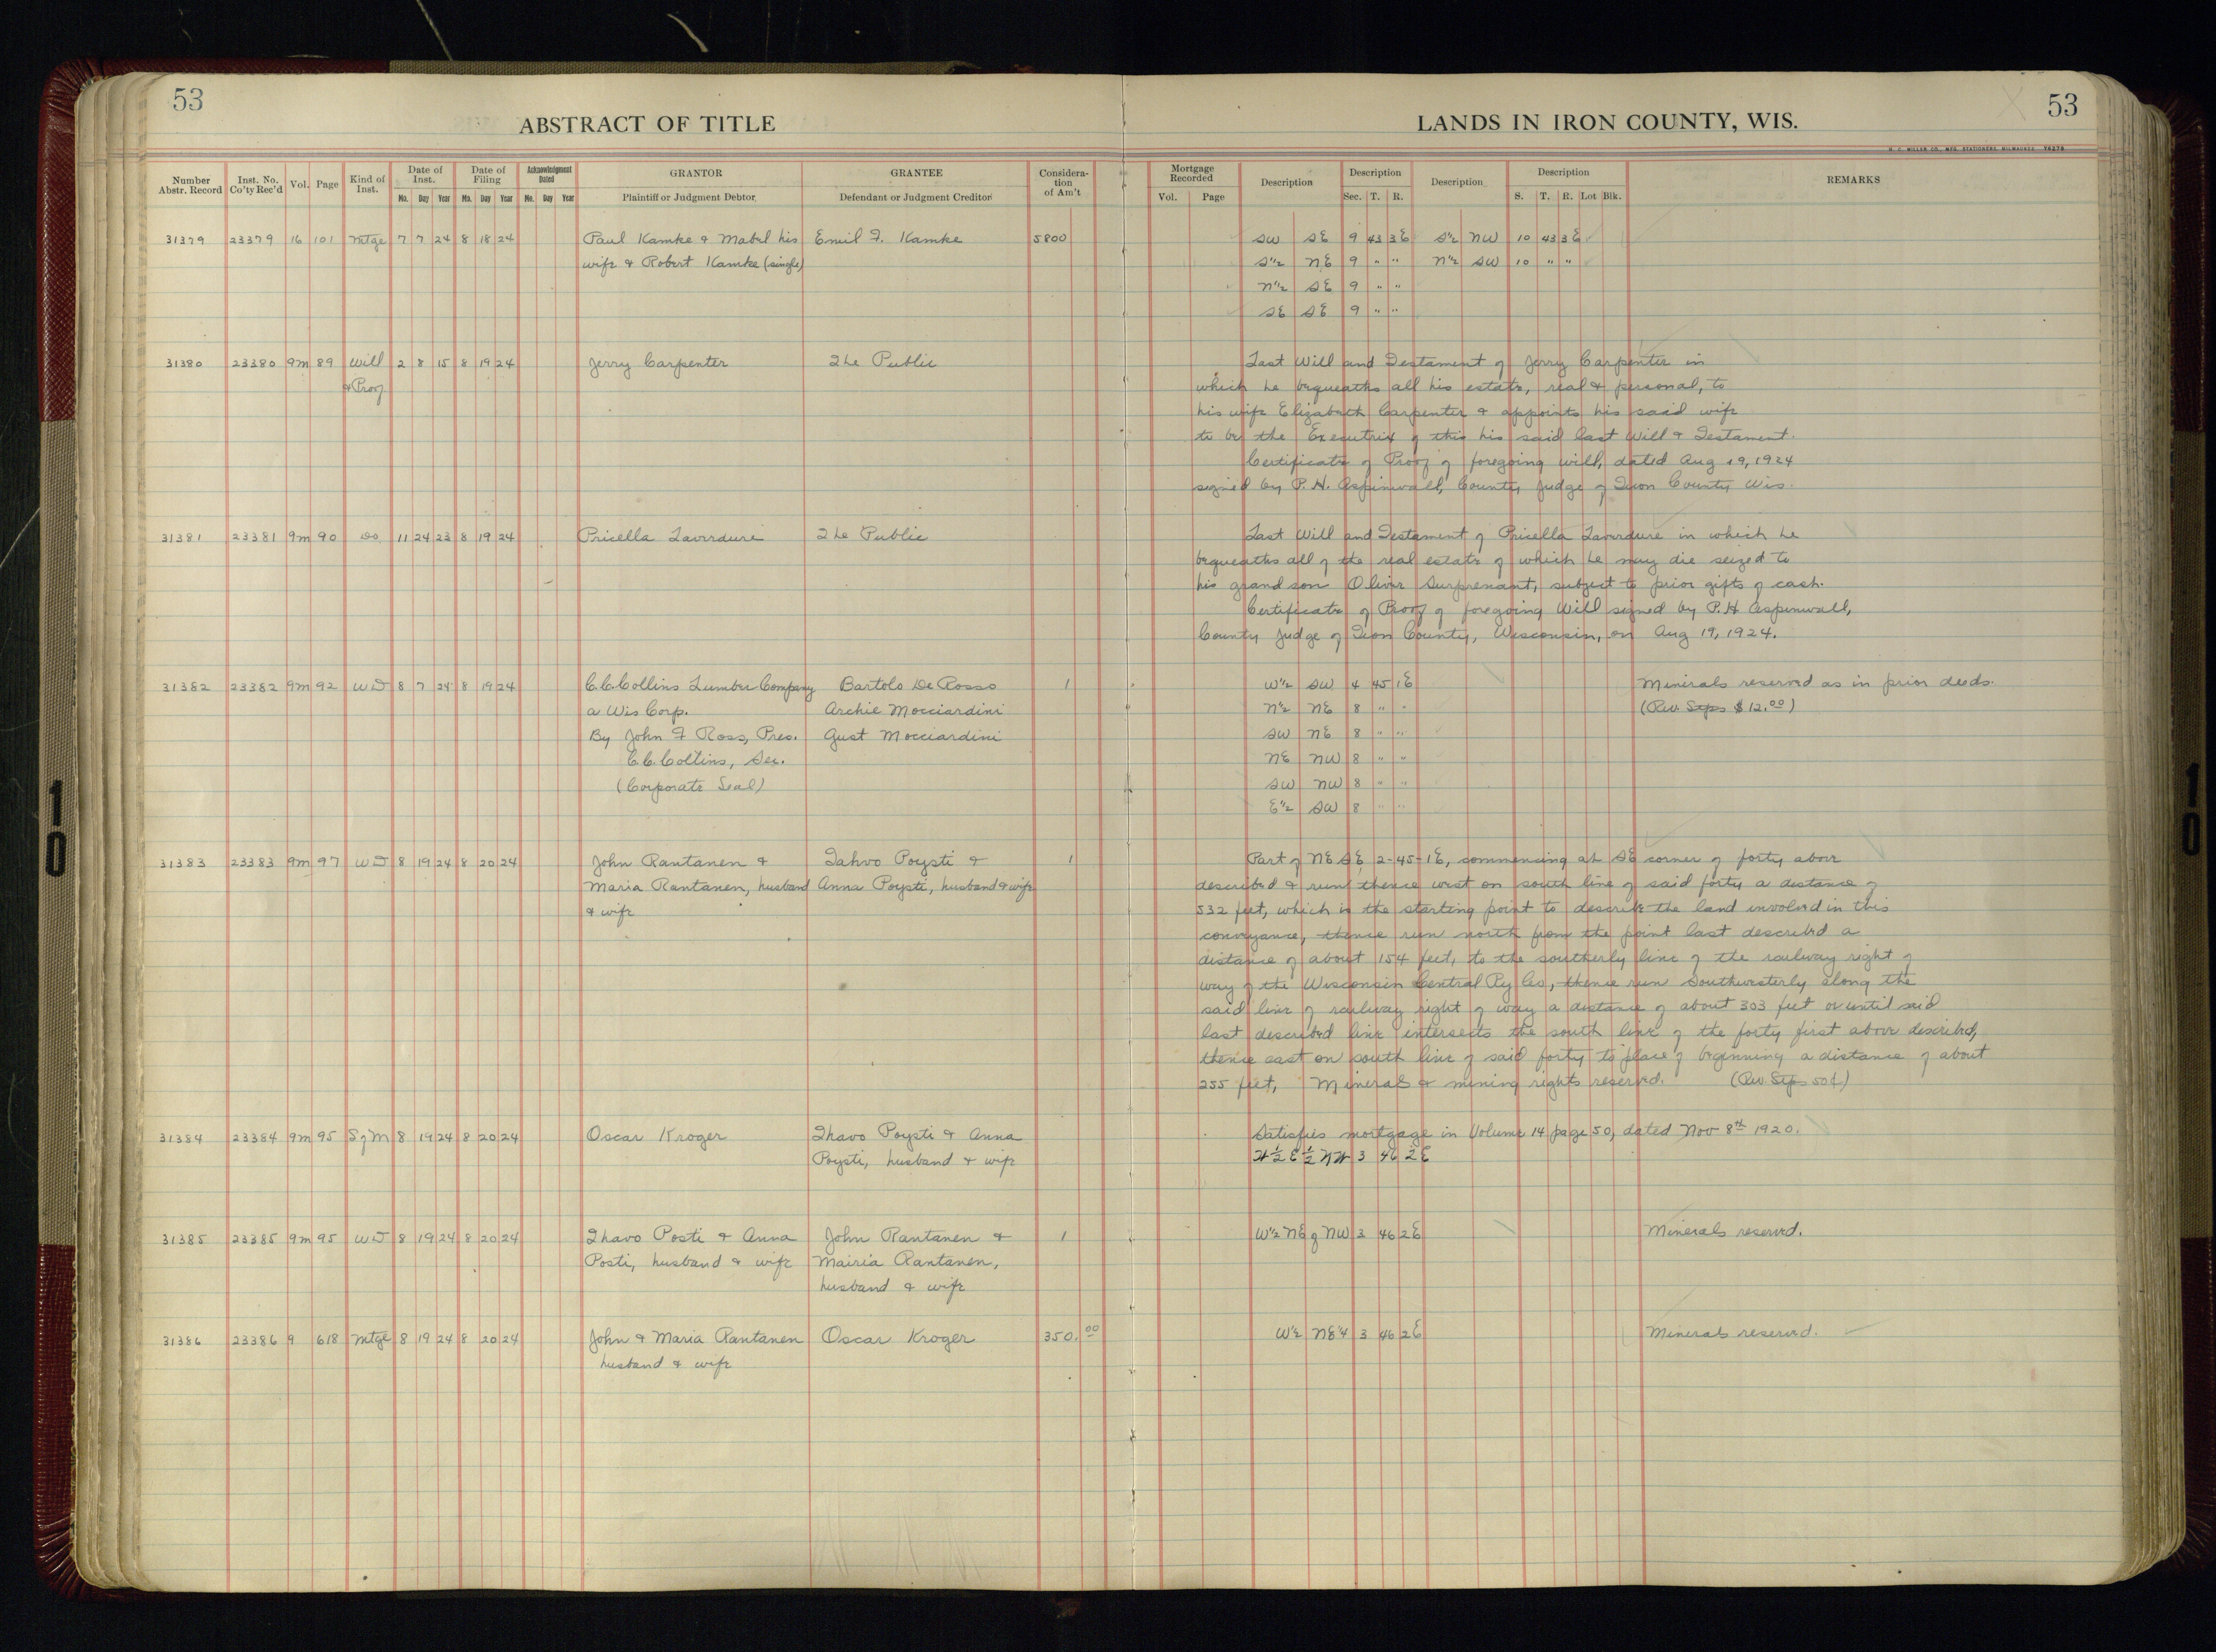 53
ABSTRACT OF TITLE
LANDS IN IRON COUNTY, WIS.
53
H. C. MILLER CO. MFG. STATIONERS, MILWAUKEE
Number Abstr. Record | Inst. No. Co'ty Rec'd | Vol. | Page | Kind of Inst. | Date of Inst. Mo. Day Year | Date of Filing Mo. Day Year | Acknowledgment Dated Mo. Day Year | GRANTOR Plaintiff or Judgment Debtor | GRANTEE Defendant or Judgment Creditor | Considera-tion of Am't | Mortgage Recorded Vol. Page | Description | Description Sec. T. R. | Description | Description S. T. R. Lot Blk. | REMARKS
31379 23379 16 101 Mtge 7 7 24 8 18 24 Paul Kamke & Mabel his Emil F. Kamke 5800 SW SE 9 43 3E S½ NW 10 43 3E
wife & Robert Kamke (single) S½ NE 9 " " N½ SW 10 " "
N½ SE 9 " "
SE SE 9 " "
31380 23380 9m 89 Will 2 8 15 8 19 24 Jerry Carpenter The Public Last Will and Testament of Jerry Carpenter in
& Proof which he bequeaths all his estate, real & personal, to
his wife Elizabeth Carpenter & appoints his said wife
to be the Executrix of this his said last Will & Testament.
Certificate of Proof of foregoing will, dated Aug 19, 1924
signed by P. H. Aspinwall, County Judge of Iron County Wis.
31381 23381 9m 90 Do 11 24 23 8 19 24 Pricella Laverdure The Public Last Will and Testament of Pricella Laverdure in which he
bequeaths all of the real estate of which he may die seized to
his grandson Oliver Surprenant, subject to prior gifts of cash.
Certificate of Proof of foregoing Will signed by P. H Aspinwall,
County Judge of Iron County, Wisconsin, on Aug 19, 1924.
31382 23382 9m 92 WD 8 7 24 8 19 24 C.C. Collins Lumber Company Bartolo De Rosso 1 W½ SW 4 45 1E Minerals reserved as in prior deeds.
a Wis Corp. Archie Mocciardini N½ NE 8 " " (Rev Stps $12.00)
By John F Ross, Pres. Gust Mocciardini SW NE 8 " "
C.C. Collins, Sec. NE NW 8 " "
(Corporate Seal) SW NW 8 " "
E½ SW 8 " "
31383 23383 9m 97 WD 8 19 24 8 20 24 John Rantanen & Tahvo Poysti & 1 Part of NE SE 2-45-1E, commencing at SE corner of forty above
Maria Rantanen, husband Anna Poysti, husband & wife described & run thence west on south line of said forty a distance of
& wife 532 feet, which is the starting point to describe the land involved in this
conveyance, thence run north from the point last described a
distance of about 154 feet, to the southerly line of the railway right of
way of the Wisconsin Central Ry Co, thence run Southwesterly along the
said line of railway right of way a distance of about 303 feet or until said
last described line intersects the south line of the forty first above described,
thence east on south line of said forty to place of beginning a distance of about
255 feet, Minerals & mining rights reserved. (Rev Stps 50¢)
31384 23384 9m 95 S of M 8 19 24 8 20 24 Oscar Kroger Thavo Poysti & Anna Satisfies mortgage in Volume 14 page 50, dated Nov 8th 1920.
Poysti, husband & wife W½ E½ NW 3 46 2E
31385 23385 9m 95 WD 8 19 24 8 20 24 Thavo Posti & Anna John Rantanen & 1 W½ NE of NW 3 46 2E Minerals reserved.
Posti, husband & wife Mairia Rantanen,
husband & wife
31386 23386 9 618 Mtge 8 19 24 8 20 24 John & Maria Rantanen Oscar Kroger 350.00 W½ NE¼ 3 46 2E Minerals reserved.
husband & wife
10
10